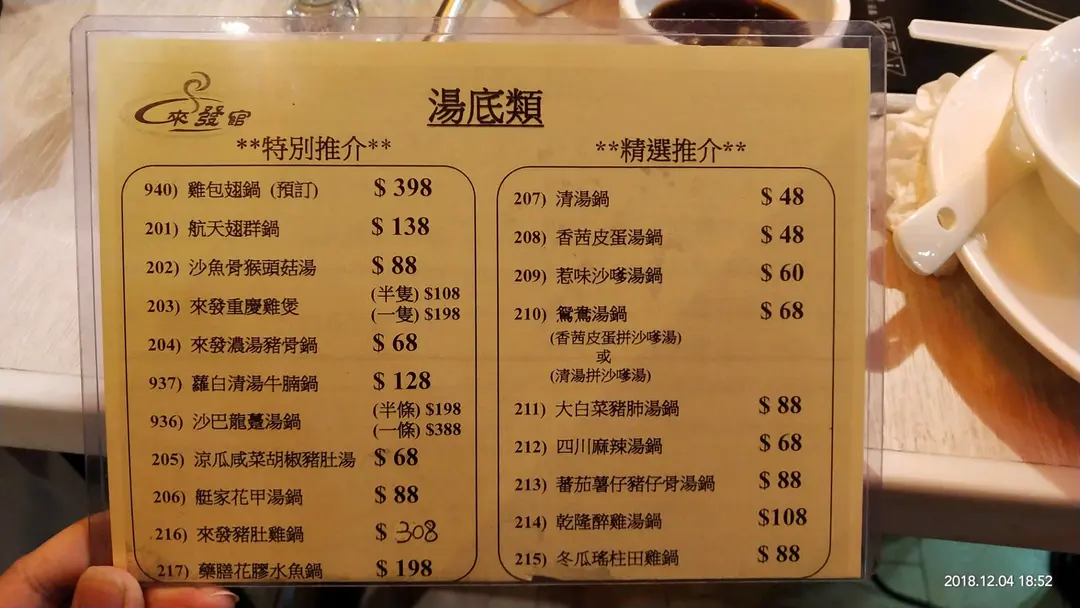 來發館
湯底類
**特別推介**
940) 雞包翅鍋 (預訂) $ 398
201) 航天翅群鍋 $ 138
202) 沙魚骨猴頭菇湯 $ 88
203) 來發重慶雞煲 (半隻) $108
(一隻) $198
204) 來發濃湯豬骨鍋 $ 68
937) 蘿白清湯牛腩鍋 $ 128
936) 沙巴龍躉湯鍋 (半條) $198
(一條) $388
205) 涼瓜咸菜胡椒豬肚湯 $ 68
206) 艇家花甲湯鍋 $ 88
216) 來發豬肚雞鍋 $ 308
217) 藥膳花膠水魚鍋 $ 198
**精選推介**
207) 清湯鍋 $ 48
208) 香茜皮蛋湯鍋 $ 48
209) 惹味沙嗲湯鍋 $ 60
210) 鴛鴦湯鍋 $ 68
(香茜皮蛋拼沙嗲湯)
或
(清湯拼沙嗲湯)
211) 大白菜豬肺湯鍋 $ 88
212) 四川麻辣湯鍋 $ 68
213) 蕃茄薯仔豬仔骨湯鍋 $ 88
214) 乾隆醉雞湯鍋 $108
215) 冬瓜瑤柱田雞鍋 $ 88
2018.12.04 18:52